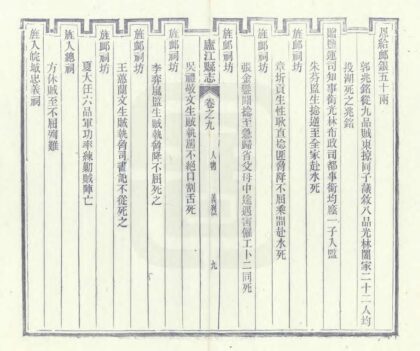 恩給卹銀五十兩
郭兆銘從九品賊東掠同子議敘八品光林闔家二十二人均
投湖死之兆銘
贈鹽運司知事銜光林布政司都事銜均廕一子入監
朱芬監生捻逼至全家赴水死
旌卹祠坊
章圻貢生性耿直捻匪脅降不屈乘間赴水死
旌卹祠坊
張金鑾聞捻至急歸省父母中途遇害僱工卜二同死
旌卹祠坊
廬江縣志 卷之九 人物 義烈 九
吳禮敬文生賊執罵不絕口割舌死
旌卹祠坊
李弈嵐監生賊執脅降不屈死之
旌卹祠坊
王蕙蘭文生賊執脅司書記不從死之
旌卹祠坊
夏大任六品軍功率練勦賊陣亡
旌入總祠
方休賊至不屈殉難
旌入皖城忠義祠